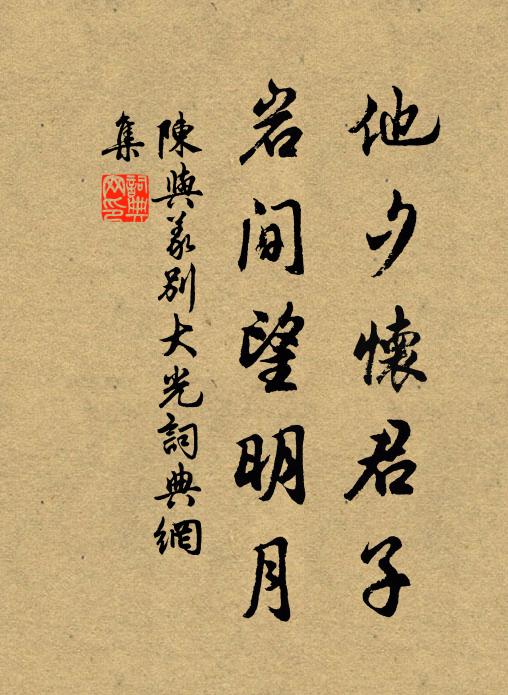 他夕懷君子
岩間望明月
陳與義別大光詞典網
集
詞典網印